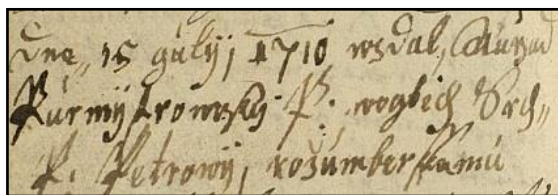 Dne 15 gulÿ, 1710 wzdal, Auržad
Purmÿstrowskÿ P. wogtiech Srch„
P. Petrowÿ, rožumberskemu